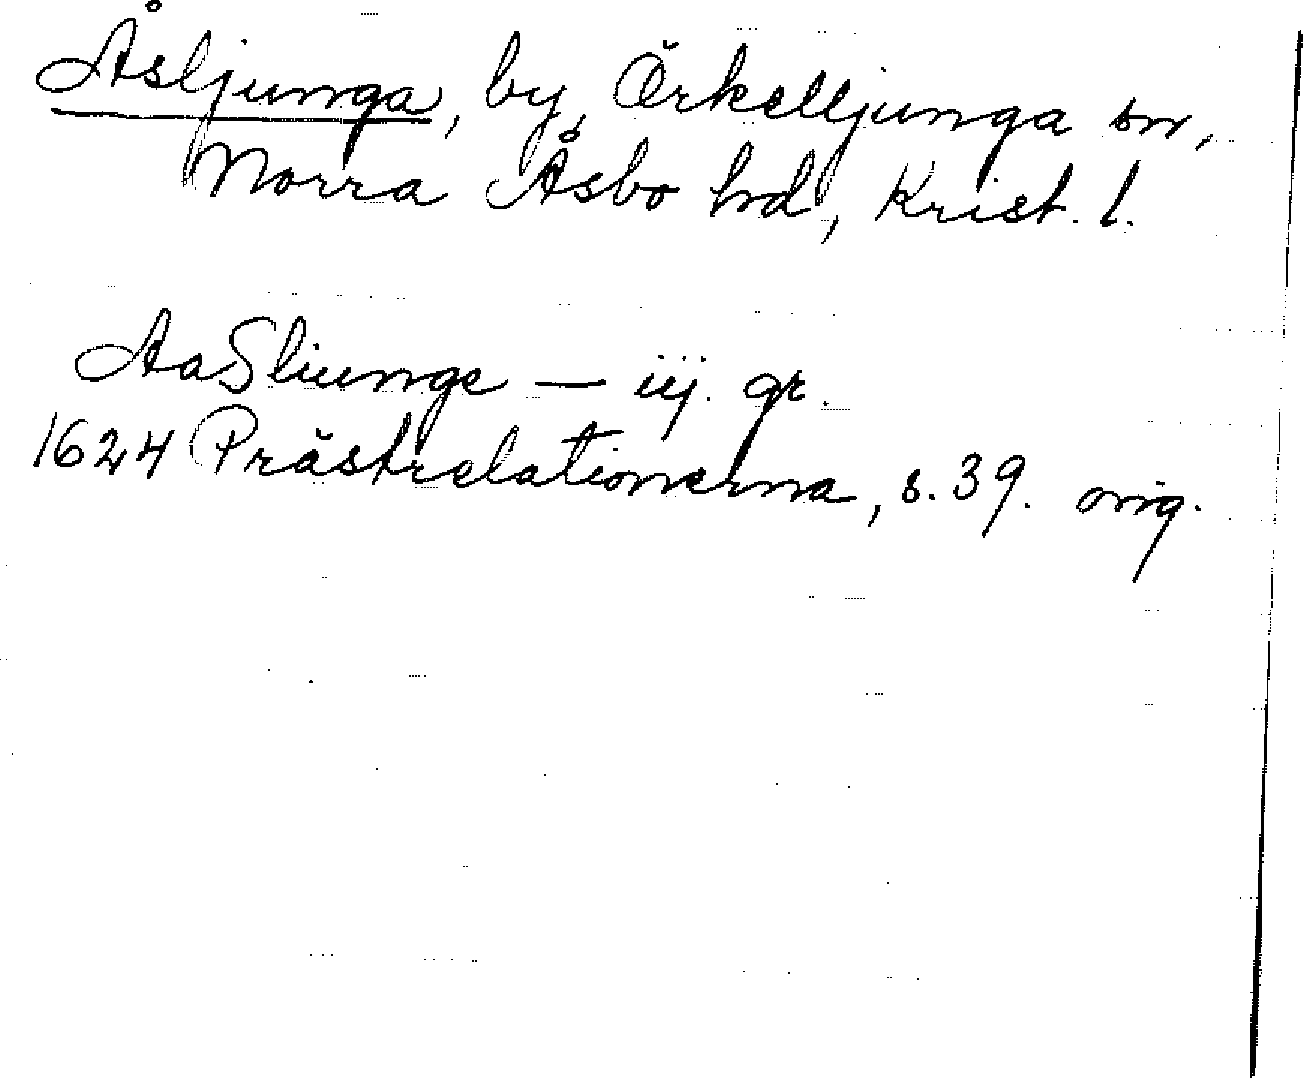 Åsljunga, by, Örkelljunga sn,
Norra Åsbo hd, Krist. l.
AaSliunge — iij. gr.
1624 Prästrelationerna, s. 39. orig.